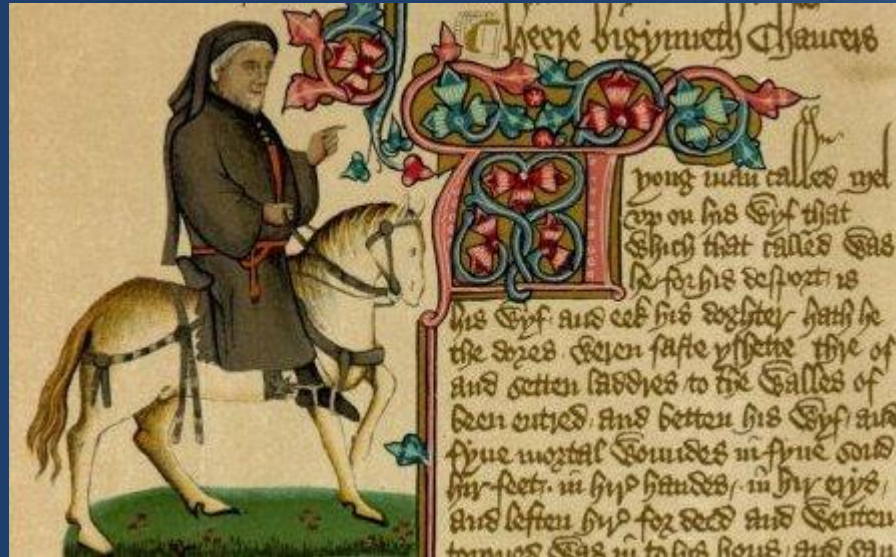 Heere bigynneth Chaucers
yong man called Mel
vp on his Wyf that
Which that called Was
he for his desport is
his Wyf and eek his doghter hath he
the dores Weren faste yshette Thre of
and setten laddres to the Walles of
been entred and betten his Wyf and
fyue mortal Woundes in fyue sond
hir feet in hir handes in hir erys
and leften hir for deed and Wenten
torned Was in to his hous and sau